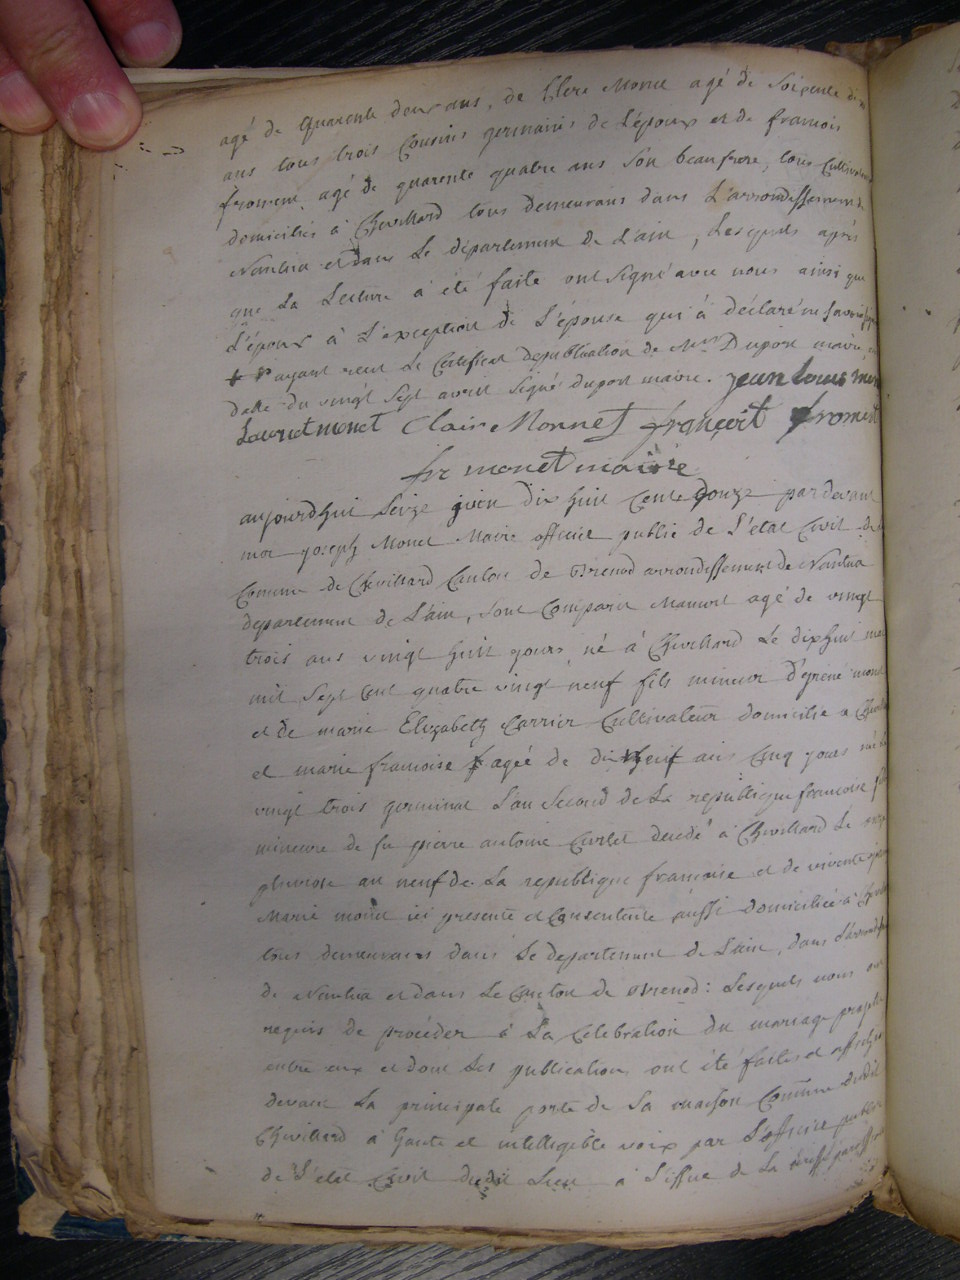 agé de quarente deux ans, de Clere Monet agé de Soixente dix
ans tous trois Cousins germains de L'époux et de francois
froment agé de quarente quatre ans son beaufrere, tous Cultivateurs
domiciliés à Chevillard tous demeurans dans L'arrondissement de
Nantua et dans Le département de L'ain, Lesquels après
que La Lecture à été faite ont signé avec nous ainsi que
L'époux à L'exception de L'épouse qui à déclaré ne savoir
ayant reçu Le Certificat depublication de Mr Dupont maire,
datte du vingt Sept avril Signé dupont maire. jean louis
Laurient monet Clair Monnet françoit froment
fr monet maire
aujourdhui Seize juin dix huit Cent douze pardevant
moi joseph Monet Maire officié public de L'état Civil de
Comune de Chevillard Canton de Brenod arrondissement de Nantua
departement de L'ain, sont Comparu Monet agé de vingt
trois ans vingt huit jours, né à Chevillard Le dixhuit mai
mil Sept Cent quatre vingt neuf fils mineur d'
et de marie Elizabeth Carrier Cultivateur domicilié à
et marie francoise agée de dixneuf ans Cinq jours né
vingt trois germinal L'an Second de La republique francoise
mineure de fu pierre antoine decedé à Chevillard Le
pluviose an neuf de La republique francoise et de vivente
Marie monet ici presente et Consentente aussi domiciliée à
tous demeurans dans Le departement de L'ain, dans L'arrondissement
de Nantua et dans Le Canton de Brenod: Lesquels nous ont
requis de procéder à La Célébration du mariage projetté
entre eux et dont Les publications ont été faites et affichées
devant La principale porte de La maison Comune dudit
Chevillard à haute et intelligible voix par L'officié public
de L'état Civil dudit Lieu à L'issue de La